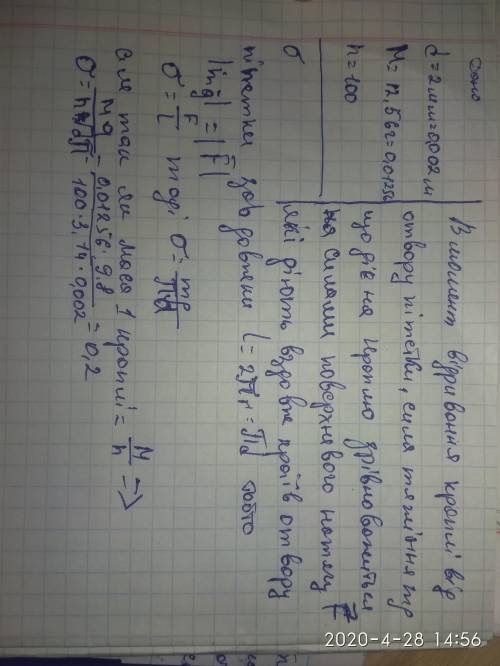 Дано
d=2мм=0,002м
M=12,56г=0,01256
n=100
σ
В момент відривання краплі від
отвору піпетки, сила тяжіння mg
що діє на краплю зрівноважиться
на силами поверхневого натягу F
які діють вздовж країв отвору
піпетки довжени l=2πr=πd тобто
|mg| = |F|
σ = F/l тоді σ = mg/πd
але так як маса 1 краплі = M/n =>
σ = Mg/nπd = 0,01256·9,8/100·3,14·0,002 = 0,2
2020-4-28 14:56